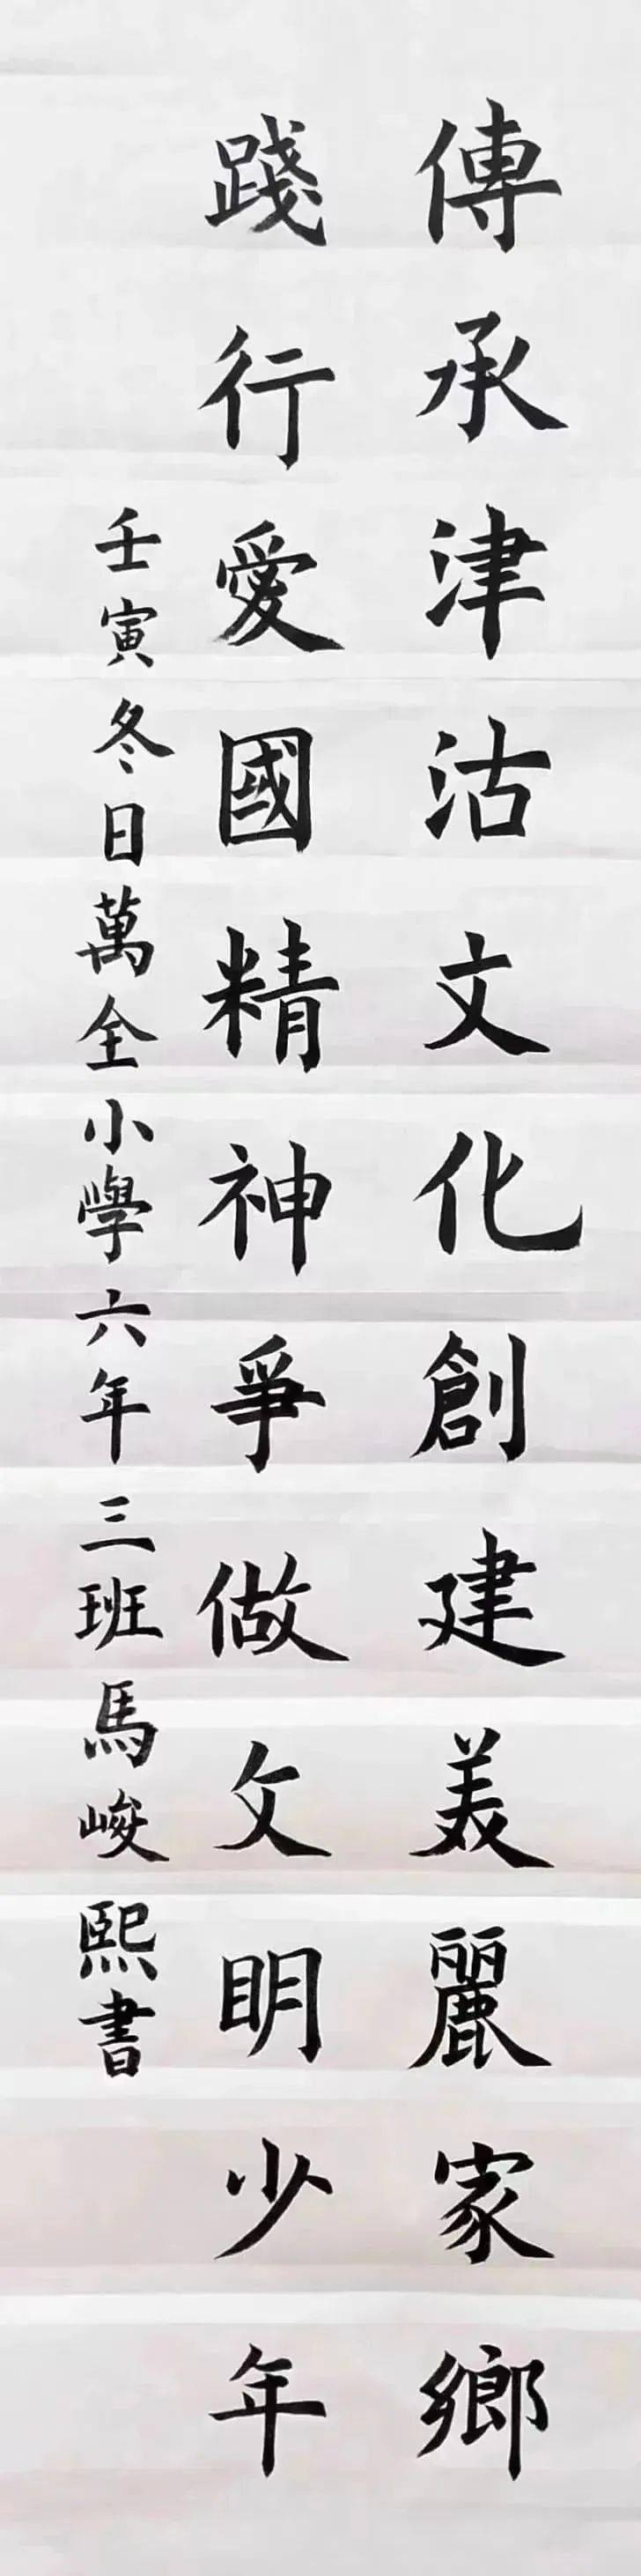 傳承津沽文化創建美麗家鄉
踐行愛國精神爭做文明少年
壬寅冬日萬全小學六年三班馬峻熙書